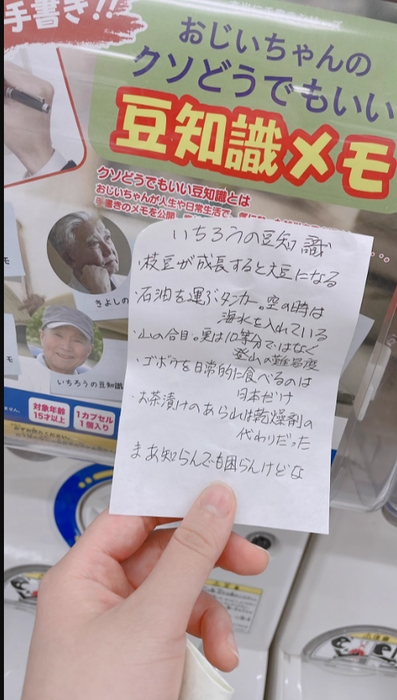 手書き!!
おじいちゃんの
クソどうでもいい
豆知識メモ
クソどうでもいい豆知識とは
おじいちゃんが人生や日常生活で
書きのメモを公開
きよしの
いちろうの豆知識
対象年齢
15才以上
1カプセル
1個入り
いちろうの豆知識
・枝豆が成長すると大豆になる
・石油を運ぶタンカー。空の時は
海水を入れている
・山の合目。実は10等分ではなく
登山の難易度
・ゴボウを日常的に食べるのは
日本だけ
・お茶漬けのあられは乾燥剤の
代わりだった
まあ知らんでも困らんけどな